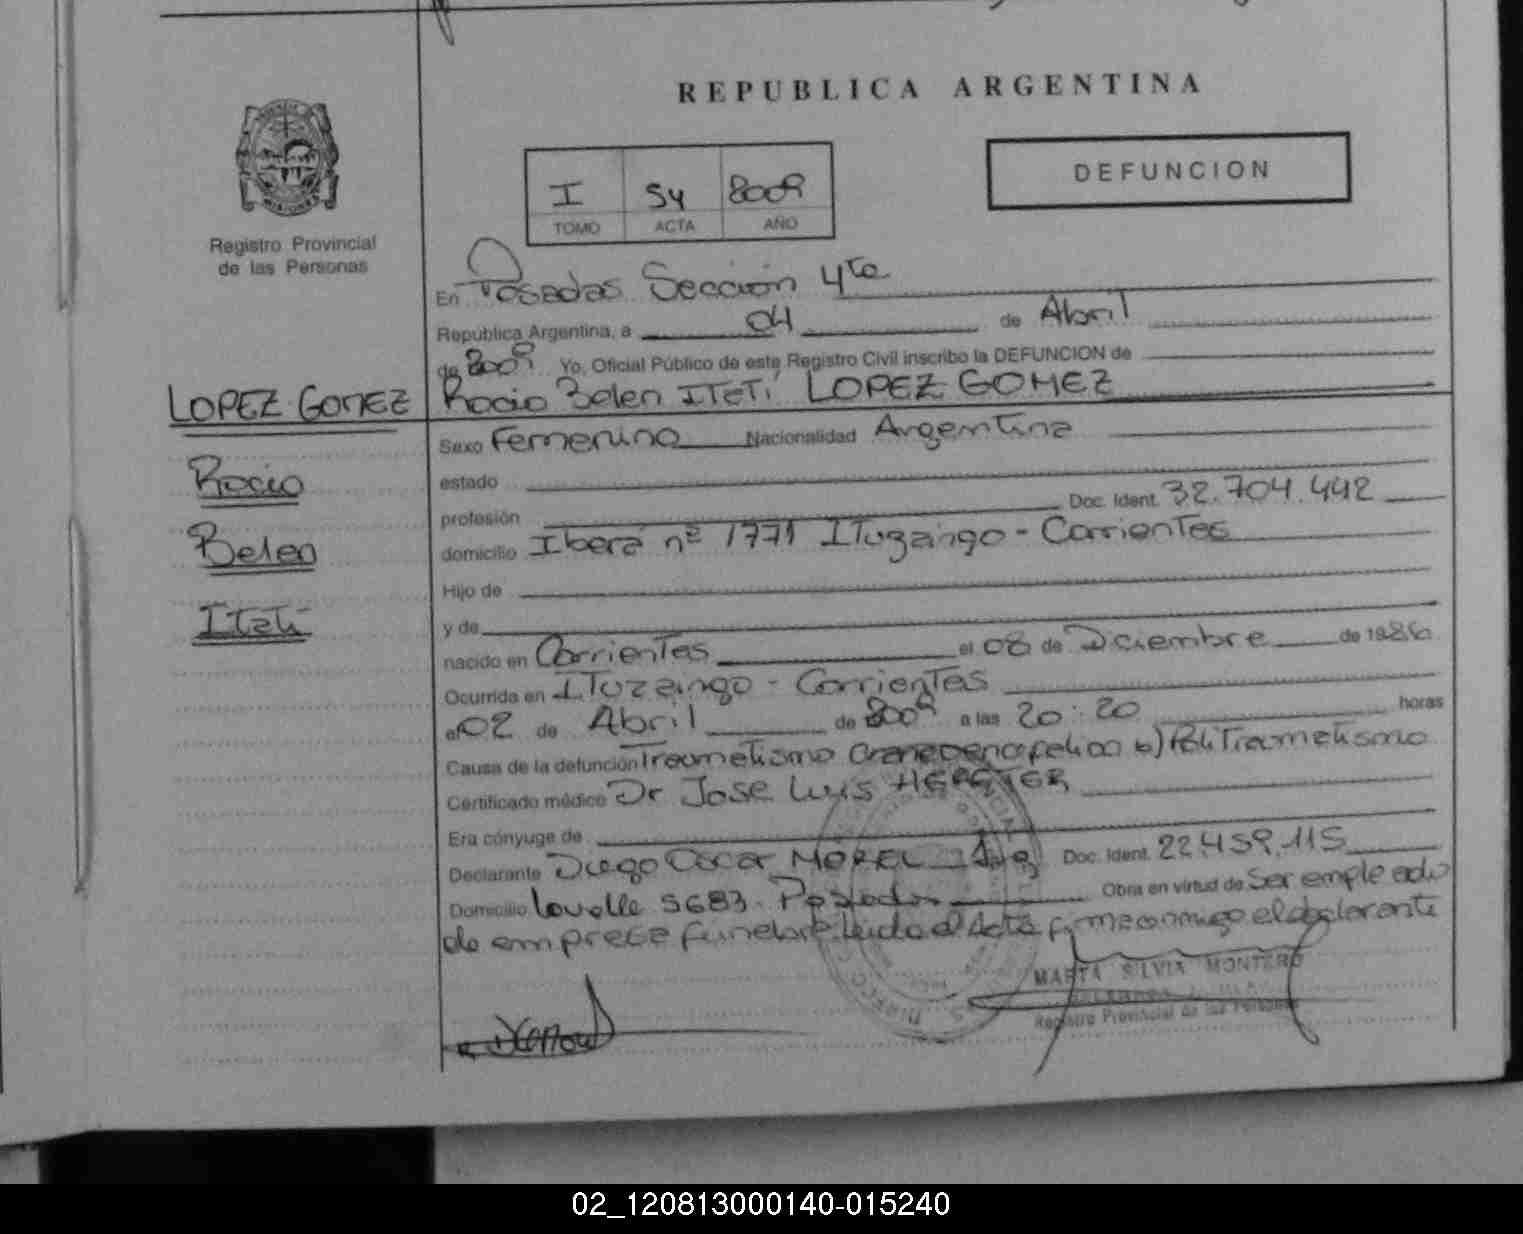 REPUBLICA ARGENTINA
DEFUNCION
I 54 2009
TOMO ACTA AÑO
Registro Provincial
de las Personas
En Posadas Sección 4ta
República Argentina, a 04 de Abril
de 2009 Yo, Oficial Público de este Registro Civil inscribo la DEFUNCION de
LOPEZ GOMEZ
Rocio Belen ITaTí LOPEZ GOMEZ
Rocio
Belen
Itatí
Sexo Femenino Nacionalidad Argentina
estado
profesión Doc. Ident. 32.704.442
domicilio Iberá nº 1771 ITuzaingo - Corrientes
Hijo de
y de
nacido en Corrientes el 08 de Diciembre de 1986
Ocurrida en ITuzaingo - Corrientes
el 02 de Abril de 2009 a las 20:20 horas
Causa de la defunción Traumatismo craneoencefalico b) PoliTraumatismo
Certificado médico Dr Jose Luis
Era cónyuge de
Declarante Diego Oscar MOREL Doc. Ident. 22.459.115
Domicilio Lavalle 5683 - Posadas Obra en virtud de Ser empleado
de empresa funebre. Leida el Acta firma conmigo el declarante
MARTA SILVIA MONTERO
Registro Provincial de las Personas
02_120813000140-015240